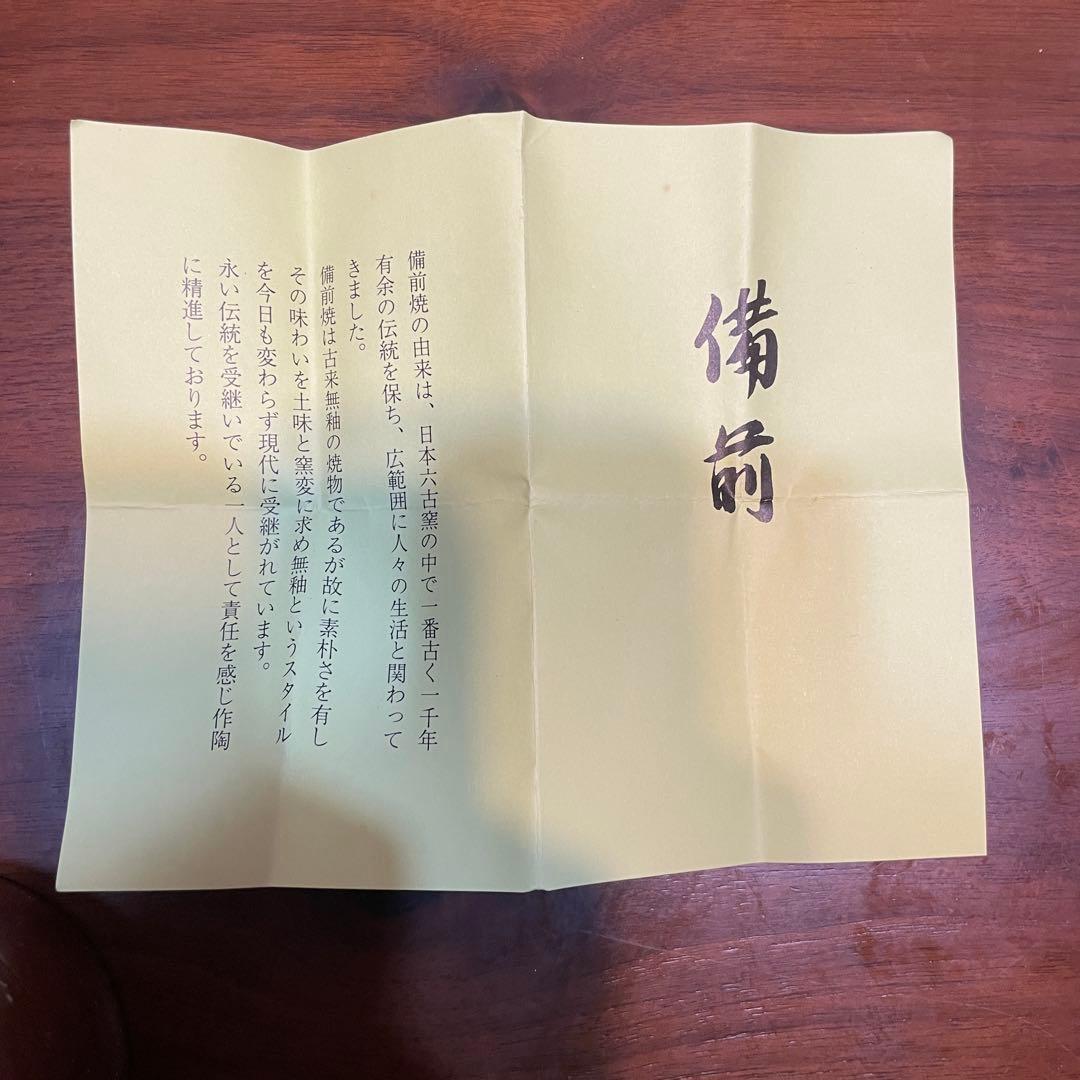 備前
備前焼の由来は、日本六古窯の中で一番古く一千年
有余の伝統を保ち、広範囲に人々の生活と関わって
きました。
備前焼は古来無釉の焼物であるが故に素朴さを有し
その味わいを土味と窯変に求め無釉というスタイル
を今日も変わらず現代に受継がれています。
永い伝統を受継いでいる一人として責任を感じ作陶
に精進しております。